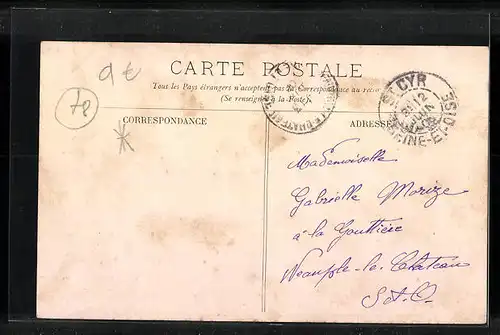 9 €
CARTE POSTALE
Tous les Pays étrangers n'acceptent pas la Correspondance au recto
(Se renseigner à la Poste).
78
ST CYR
12
SEINE-ET-OISE
CORRESPONDANCE
ADRESSE
Mademoiselle
Gabrielle Morize
à la Gouttière
Neauphle-le-Château
S-et-O.